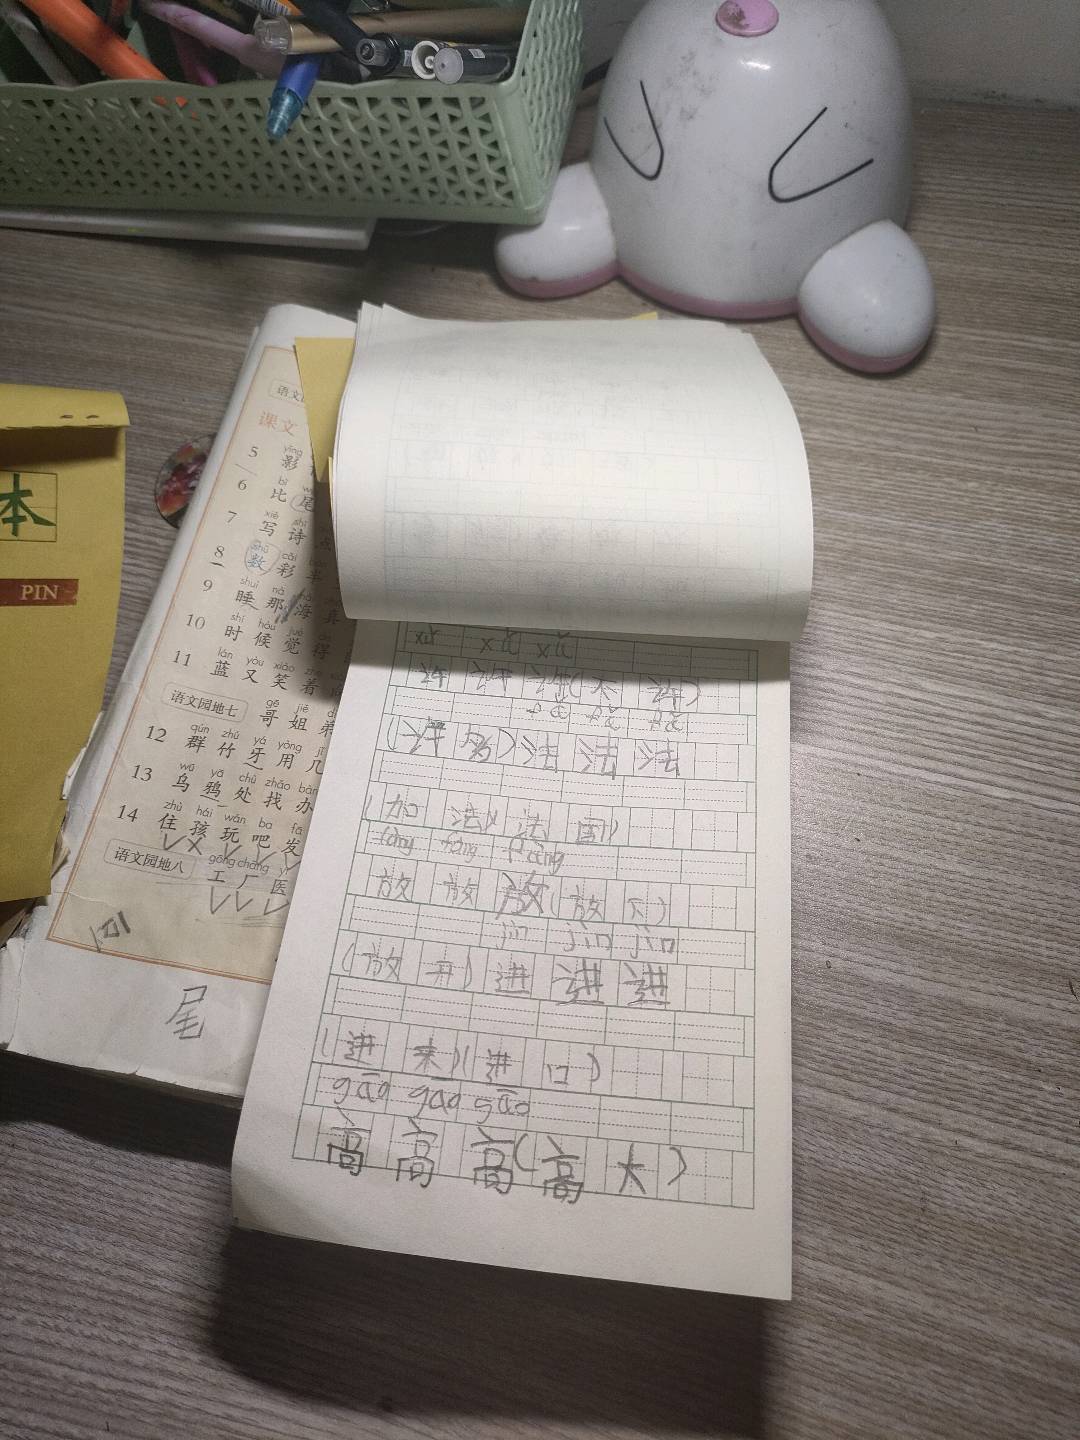 本
PIN
语文
课文
yǐng
5 影
bǐ
6 比 尾
xiě shī
7 写 诗 点
shù cǎi
8 数 彩 半
shuì nà
9 睡 那 海 真
shí hòu jué
10 时 候 觉 得
lán yòu xiào zhe
11 蓝 又 笑 着
语文园地七
gē jiě
哥 姐 弟
qún zhú yá yòng jǐ
12 群 竹 牙 用 几
wū yā chǔ zhǎo bàn
13 乌 鸦 处 找 办
zhù hái wán ba fā
14 住 孩 玩 吧 发
语文园地八
gōng chǎng yī
工 厂 医
尾
xǔ xǔ xǔ
许 许 许(不 许)
fǎ fǎ fǎ
(许 多)法 法 法
(加 法)(法 国)
fàng fàng fàng
放 放 放(放 下)
jìn jìn jìn
(放 开)进 进 进
(进 来)(进 口)
gāo gāo gāo
高 高 高(高 大)